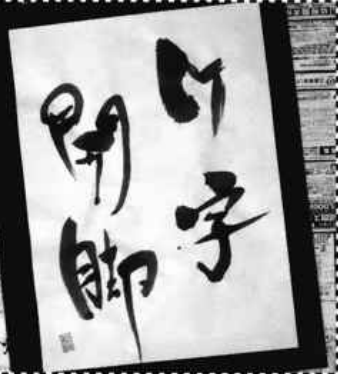 M字
開脚